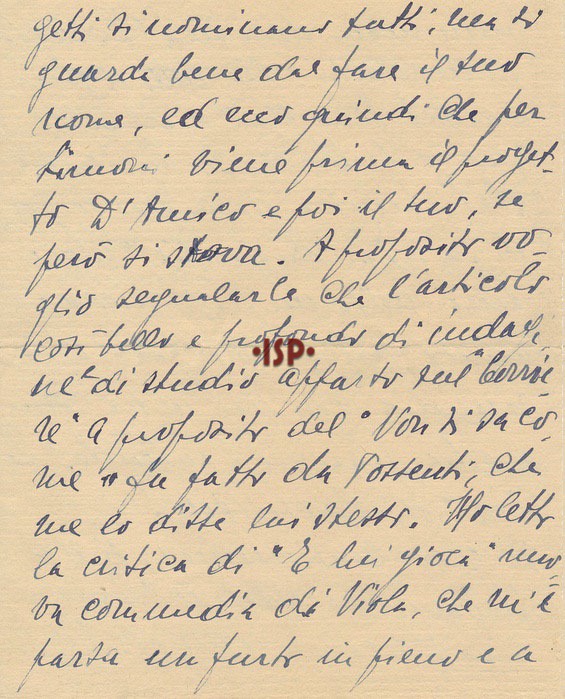 getti si nominano tutti, ma si
guarda bene dal fare il suo
nome, ed ecco quindi che per
Simoni viene prima il proget-
to D'Amico e poi il suo, se
però si trova. A proposito vo-
glio segnalarle che l'articolo
così bello e profondo di indagi-
ne e di studio apparso sul "Corrie-
re" a proposito del "Non si sa co-
me" fu fatto da Possenti, che
me lo disse lui stesso. Ho letto
la critica di "E lui gioca" nuo-
va commedia di Viola, che m'è
parsa un furto in pieno e a
·ISP·